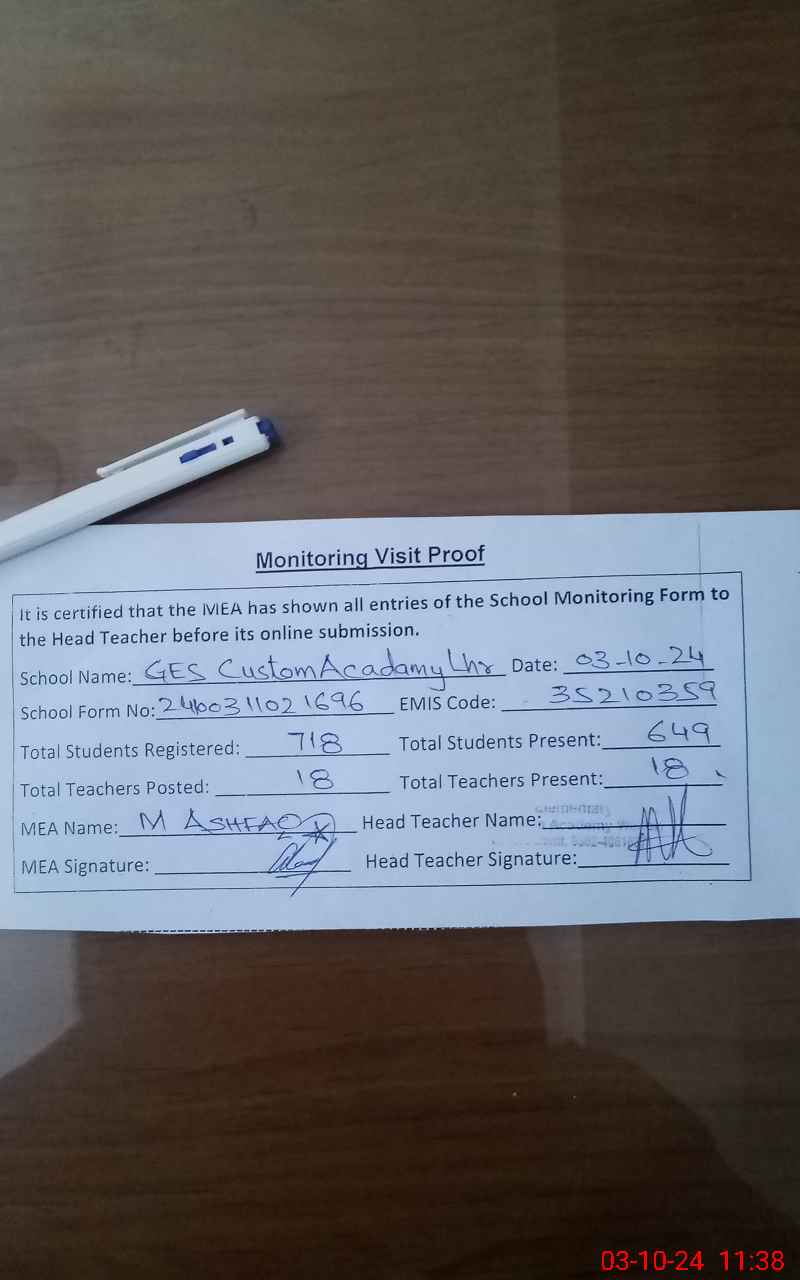 Monitoring Visit Proof
It is certified that the MEA has shown all entries of the School Monitoring Form to
the Head Teacher before its online submission.
School Name: GES Custom Acadamy Lhr Date: 03-10-24
School Form No: EMIS Code: 35210359
Total Students Registered: 718 Total Students Present: 649
Total Teachers Posted: 18 Total Teachers Present: 18
MEA Name: M ASHFAQ Head Teacher Name:
Elementary
Academy
MEA Signature: Head Teacher Signature:
03-10-24 11:38